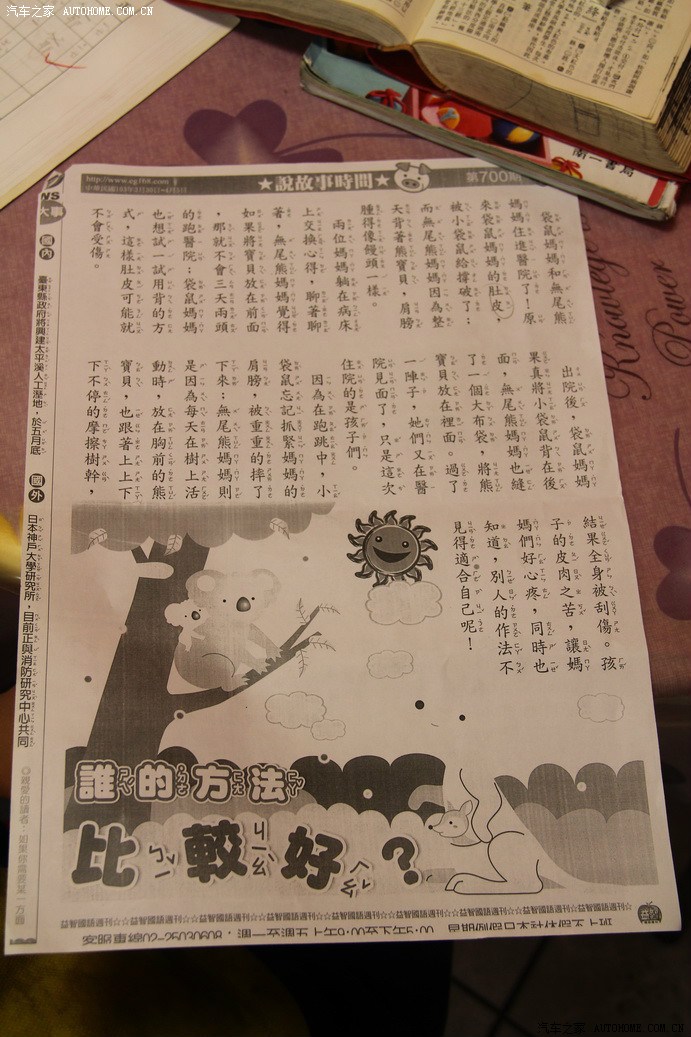 汽车之家 AUTOHOME.COM.CN
南一書局
Knowledge
Power
http://www.eg168.com
★說故事時間★
第700期
袋鼠媽媽和無尾熊
媽媽住進醫院了！原
來袋鼠媽媽的肚皮，
被小袋鼠給撐破了；
而無尾熊媽媽因為整
天背著熊寶貝，肩膀
腫得像饅頭一樣。
兩位媽媽躺在病床
上交換心得，聊著聊
著，無尾熊媽媽覺得
如果將寶貝放在前面
，那就不會三天兩頭
的跑醫院；袋鼠媽媽
也想試一試用背的方
式，這樣肚皮可能就
不會受傷。
出院後，袋鼠媽媽
果真將小袋鼠背在後
面，無尾熊媽媽也縫
了一個大布袋，將熊
寶貝放在裡面。過了
一陣子，她們又在醫
院見面了，只是這次
住院的是孩子們。
因為在跑跳中，小
袋鼠忘記抓緊媽媽的
肩膀，被重重的摔了
下來；無尾熊媽媽則
是因為每天在樹上活
動時，放在胸前的熊
寶貝，也跟著上上下
下不停的摩擦樹幹，
結果全身被刮傷。孩
子的皮肉之苦，讓媽
媽們好心疼，同時也
知道，別人的作法不
見得適合自己呢！
誰的方法
比較好？
大事
國內
臺東縣政府將興建太平溪人工溼地，於五月底
國外
日本神戶大學研究所，目前正與消防研究中心共同
◎親愛的讀者：如果你需要第一方面
益智國語週刊☆☆益智國語週刊☆☆益智國語週刊☆☆益智國語週刊☆☆益智國語週刊☆☆益智國語週刊☆☆益智國語週刊
汽车之家 AUTOHOME.COM.CN